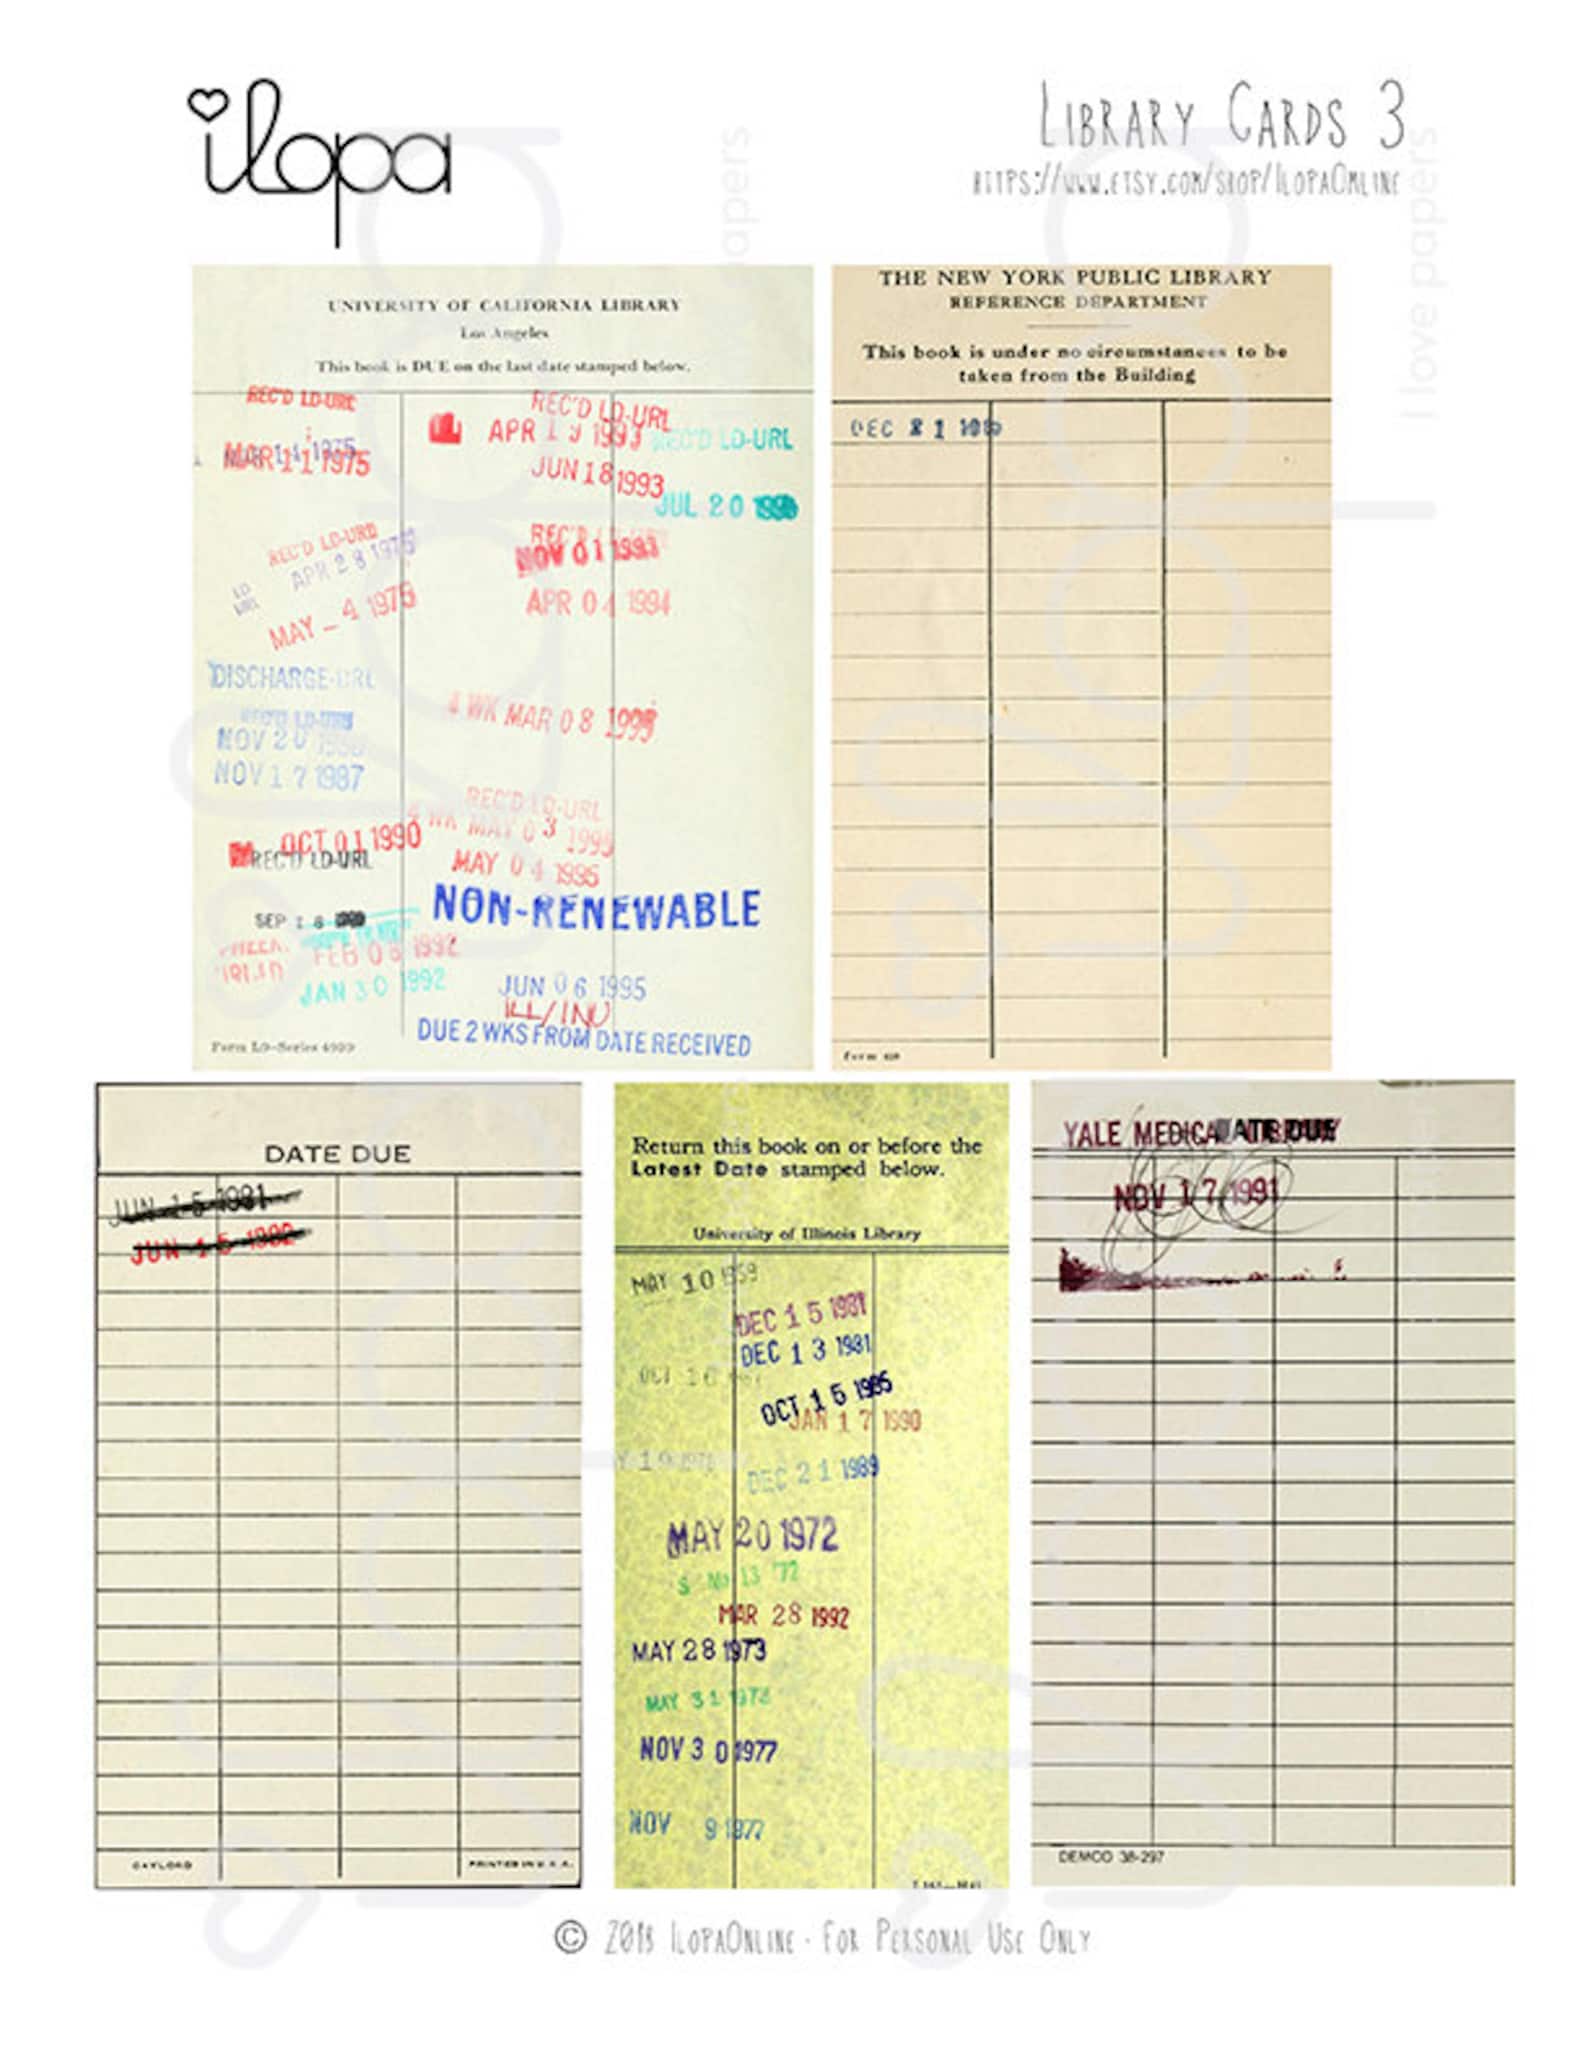 ilopa
Library Cards 3
https://www.etsy.com/shop/IlopaOnline
I love papers
UNIVERSITY OF CALIFORNIA LIBRARY
Los Angeles
This book is DUE on the last date stamped below.
REC'D LD-URL
MAR 11 1975
REC'D LD-URL
APR 28 1975
LD
URL
MAY - 4 1975
DISCHARGE-URL
REC'D LD-URL
NOV 20
NOV 17 1987
OCT 01 1990
REC'D LD-URL
SEP 18
FEB 06 1992
JAN 30 1992
REC'D LD-URL
APR 19 1993
JUN 18 1993
REC'D LD-URL
JUL 20
REC'D
NOV 01 1993
APR 04 1994
4 WK MAR 08 1995
REC'D LD-URL
4 WK MAY 03 1995
MAY 04 1995
NON-RENEWABLE
JUN 06 1995
ILL/INU
DUE 2 WKS FROM DATE RECEIVED
Form L9-Series 4939
THE NEW YORK PUBLIC LIBRARY
REFERENCE DEPARTMENT
This book is under no circumstances to be
taken from the Building
DEC 21
DATE DUE
JUN 15 1981
JUN 15 1982
GAYLORD
PRINTED IN U.S.A.
Return this book on or before the
Latest Date stamped below.
University of Illinois Library
MAY 10 1959
DEC 15 1981
DEC 13 1981
OCT 16
OCT 15 1985
JAN 17 1990
DEC 21 1989
MAY 20 1972
13 '72
MAR 28 1992
MAY 28 1973
MAY 31
NOV 30 1977
NOV 9 1977
YALE MEDICAL LIBRARY
DATE DUE
NOV 17 1991
DEMCO 38-297
© 2018 IlopaOnline · For Personal Use Only